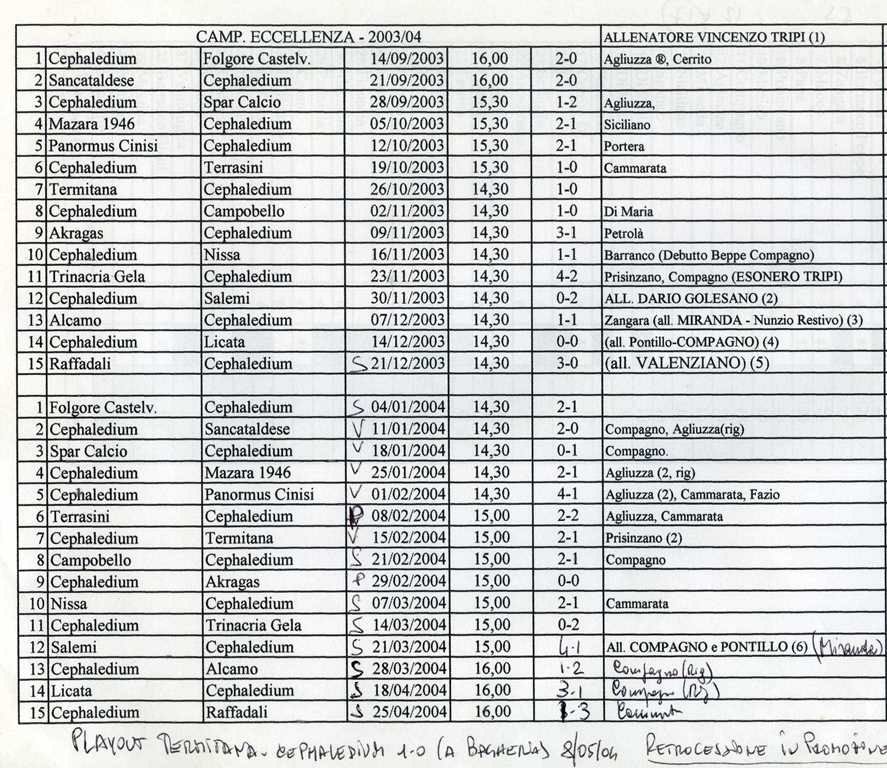 CAMP. ECCELLENZA - 2003/04 ALLENATORE VINCENZO TRIPI (1)
1 Cephaledium Folgore Castelv. 14/09/2003 16,00 2-0 Agliuzza ®, Cerrito
2 Sancataldese Cephaledium 21/09/2003 16,00 2-0
3 Cephaledium Spar Calcio 28/09/2003 15,30 1-2 Agliuzza,
4 Mazara 1946 Cephaledium 05/10/2003 15,30 2-1 Siciliano
5 Panormus Cinisi Cephaledium 12/10/2003 15,30 2-1 Portera
6 Cephaledium Terrasini 19/10/2003 15,30 1-0 Cammarata
7 Termitana Cephaledium 26/10/2003 14,30 1-0
8 Cephaledium Campobello 02/11/2003 14,30 1-0 Di Maria
9 Akragas Cephaledium 09/11/2003 14,30 3-1 Petrolà
10 Cephaledium Nissa 16/11/2003 14,30 1-1 Barranco (Debutto Beppe Compagno)
11 Trinacria Gela Cephaledium 23/11/2003 14,30 4-2 Prisinzano, Compagno (ESONERO TRIPI)
12 Cephaledium Salemi 30/11/2003 14,30 0-2 ALL. DARIO GOLESANO (2)
13 Alcamo Cephaledium 07/12/2003 14,30 1-1 Zangara (all. MIRANDA - Nunzio Restivo) (3)
14 Cephaledium Licata 14/12/2003 14,30 0-0 (all. Pontillo-COMPAGNO) (4)
15 Raffadali Cephaledium S 21/12/2003 14,30 3-0 (all. VALENZIANO) (5)
1 Folgore Castelv. Cephaledium S 04/01/2004 14,30 2-1
2 Cephaledium Sancataldese V 11/01/2004 14,30 2-0 Compagno, Agliuzza(rig)
3 Spar Calcio Cephaledium V 18/01/2004 14,30 0-1 Compagno.
4 Cephaledium Mazara 1946 V 25/01/2004 14,30 2-1 Agliuzza (2, rig)
5 Cephaledium Panormus Cinisi V 01/02/2004 14,30 4-1 Agliuzza (2), Cammarata, Fazio
6 Terrasini Cephaledium P 08/02/2004 15,00 2-2 Agliuzza, Cammarata
7 Cephaledium Termitana V 15/02/2004 15,00 2-1 Prisinzano (2)
8 Campobello Cephaledium S 21/02/2004 15,00 2-1 Compagno
9 Cephaledium Akragas P 29/02/2004 15,00 0-0
10 Nissa Cephaledium S 07/03/2004 15,00 2-1 Cammarata
11 Cephaledium Trinacria Gela S 14/03/2004 15,00 0-2
12 Salemi Cephaledium S 21/03/2004 15,00 4-1 All. COMPAGNO e PONTILLO (6) (Miranda)
13 Cephaledium Alcamo S 28/03/2004 16,00 1-2 Compagno (Rig)
14 Licata Cephaledium S 18/04/2004 16,00 3-1 Compagno (Rig)
15 Cephaledium Raffadali S 25/04/2004 16,00 1-3
PLAYOUT TERMITANA - CEPHALEDIUM 1-0 (A BAGHERIA) 8/05/04 RETROCESSIONE IN PROMOZIONE